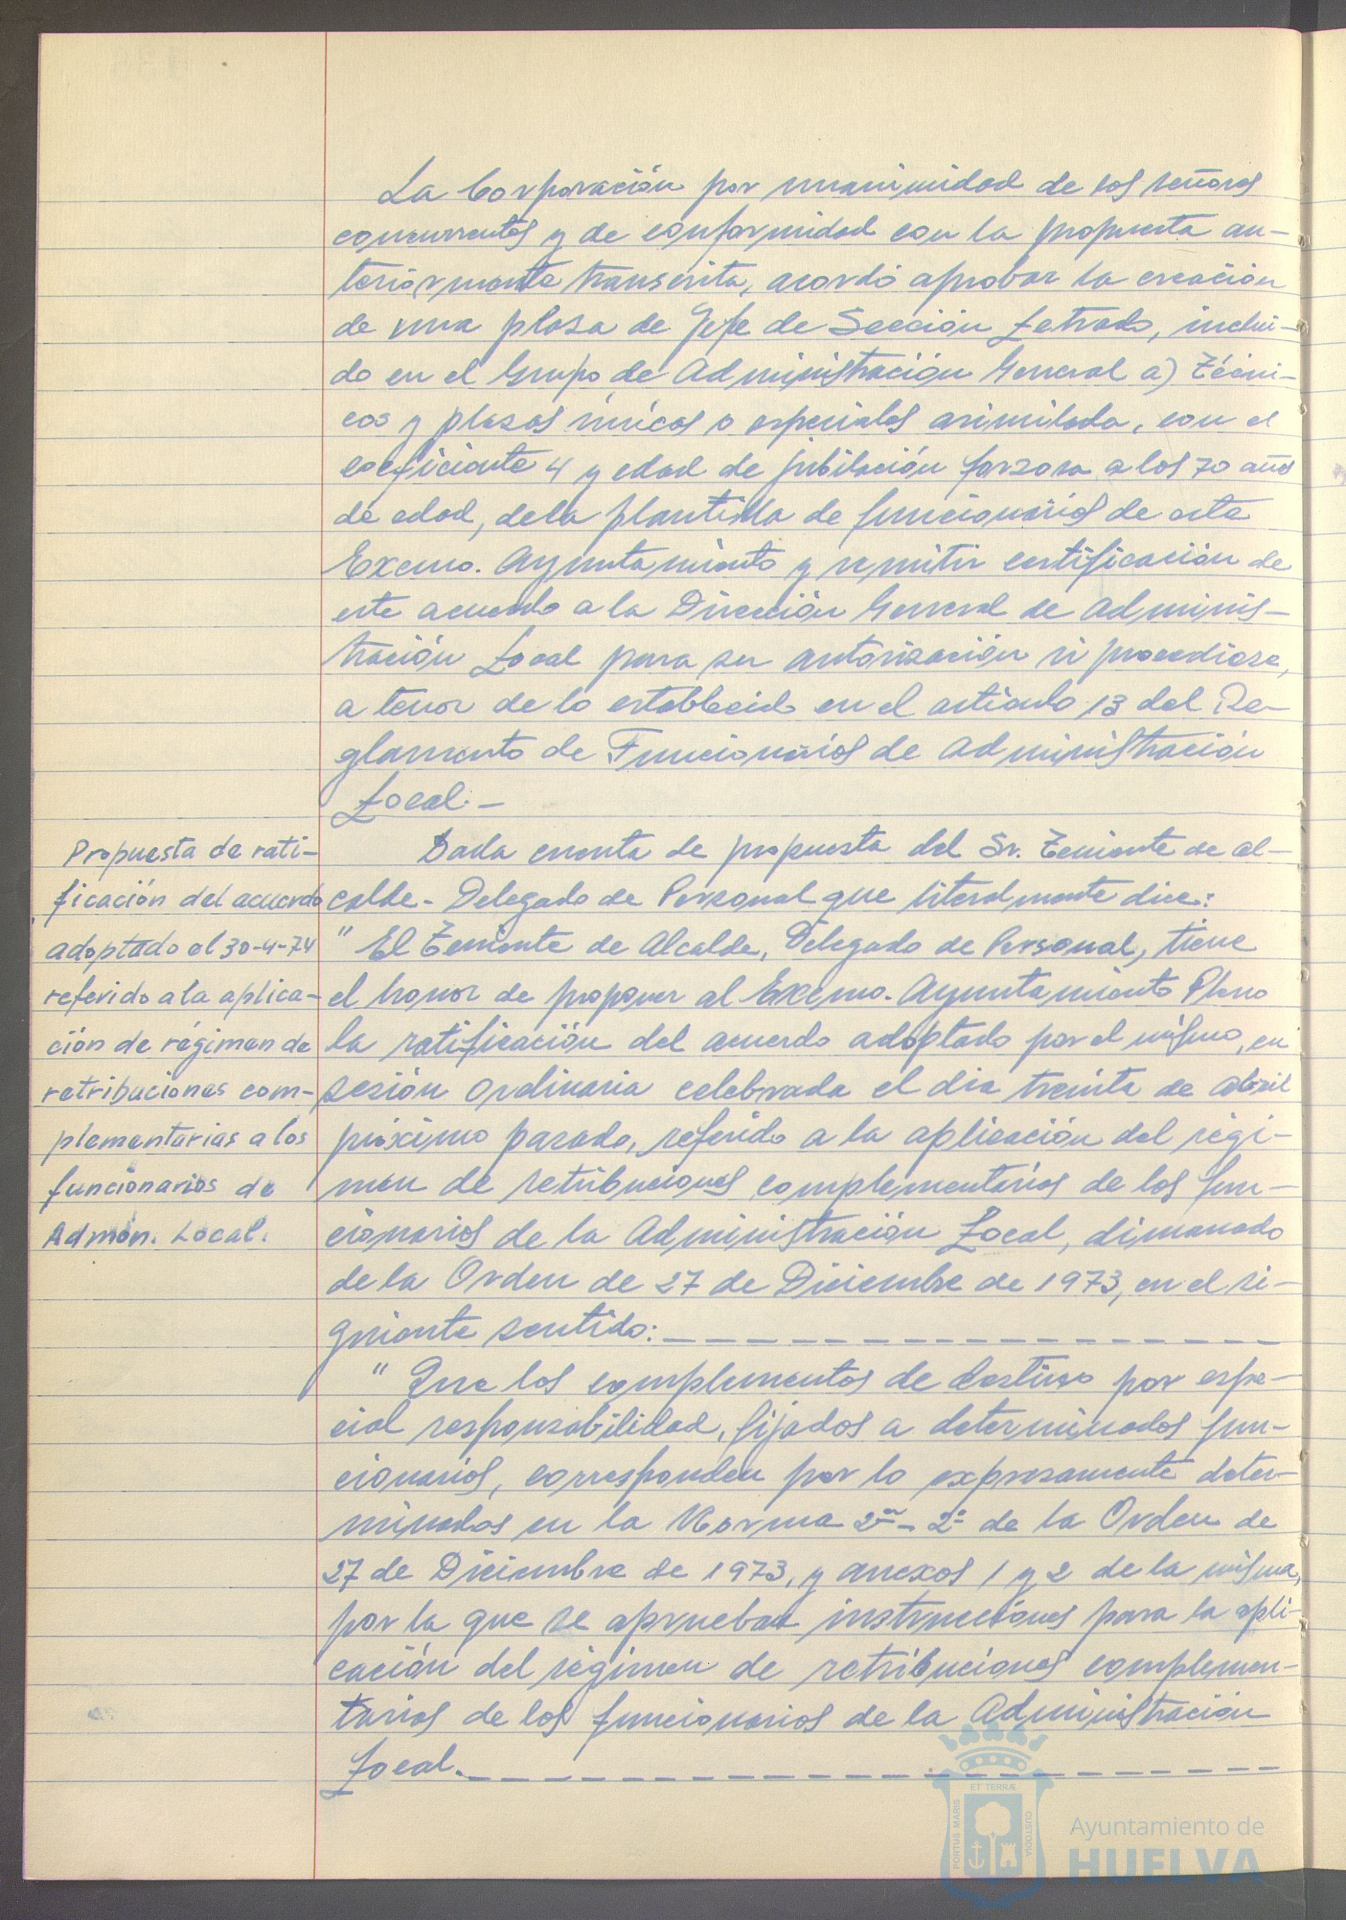 La Corporación por unanimidad de los señores
concurrentes y de conformidad con la propuesta an-
teriormente transcrita, acordó aprobar la creación
de una plaza de Jefe de Sección Letrado, inclui-
do en el Grupo de Administración General a) Técni-
cos y plazas únicas o especiales asimilada, con el
coeficiente 4 y edad de jubilación forzosa a los 70 años
de edad, de la plantilla de funcionarios de este
Excmo. Ayuntamiento y remitir certificación de
este acuerdo a la Dirección General de Adminis-
tración Local para su autorización si procediese,
a tenor de lo establecido en el artículo 13 del Re-
glamento de Funcionarios de Administración
Local.-
Propuesta de rati-
ficación del acuerdo
adoptado el 30-4-74
referido a la aplica-
ción de régimen de
retribuciones com-
plementarias a los
funcionarios de
Admón. Local.
Dada cuenta de propuesta del Sr. Teniente de al-
calde-Delegado de Personal que literalmente dice:
" El Teniente de Alcalde, Delegado de Personal, tiene
el honor de proponer al Excmo. Ayuntamiento Pleno
la ratificación del acuerdo adoptado por el mismo, en
sesión ordinaria celebrada el dia treinta de Abril
próximo pasado, referido a la aplicación del régi-
men de retribuciones complementarias de los fun-
cionarios de la Administración Local, dimanado
de la Orden de 27 de Diciembre de 1973, en el si-
guiente sentido:
" Que los complementos de destino por espe-
cial responsabilidad, fijados a determinados fun-
cionarios, corresponden por lo expresamente deter-
minados en la Norma 2ª-2º de la Orden de
27 de Diciembre de 1973, y anexos 1 y 2 de la misma,
por la que se aprueban instrucciones para la apli-
cación del régimen de retribuciones complemen-
tarias de los funcionarios de la Administración
Local.
PORTUS MARIS
ET TERRÆ
CUSTODIA
Ayuntamiento de
HUELVA